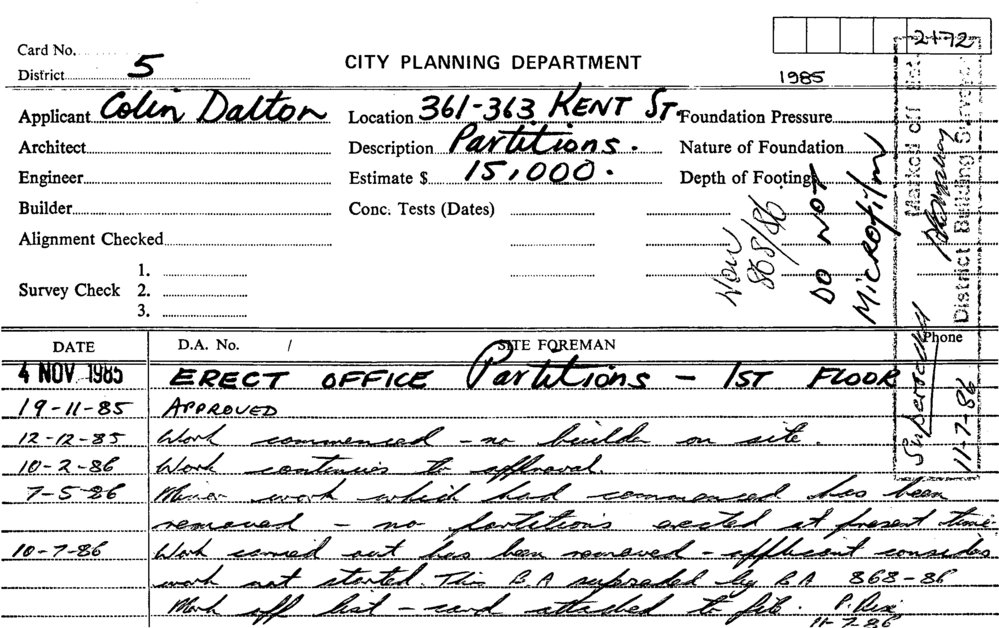 2172
Card No.
District 5
CITY PLANNING DEPARTMENT
1985
Applicant Colin Dalton
Location 361-363 KENT ST.
Foundation Pressure
Architect
Description Partitions.
Nature of Foundation
Engineer
Estimate $ 15,000.
Depth of Footings
Builder
Conc. Tests (Dates)
Alignment Checked
Survey Check
1.
2.
3.
Now
868/86
DO NOT
MICROFILM
Marked off
District Building Surveyor
Superseded
11-7-86
DATE D.A. No. / SITE FOREMAN Phone
4 NOV 1985 ERECT OFFICE Partitions - 1ST FLOOR
19-11-85 APPROVED
12-12-85 Work commenced - no builder on site.
10-2-86 Work continues to approval.
7-5-86 Minor work which had commenced has been
removed - no partitions erected at present time.
10-7-86 Work carried out has been removed - applicant considers
work not started. This B.A supraded by B.A 868-86
Mark off list - card attached to file.
11-7-86